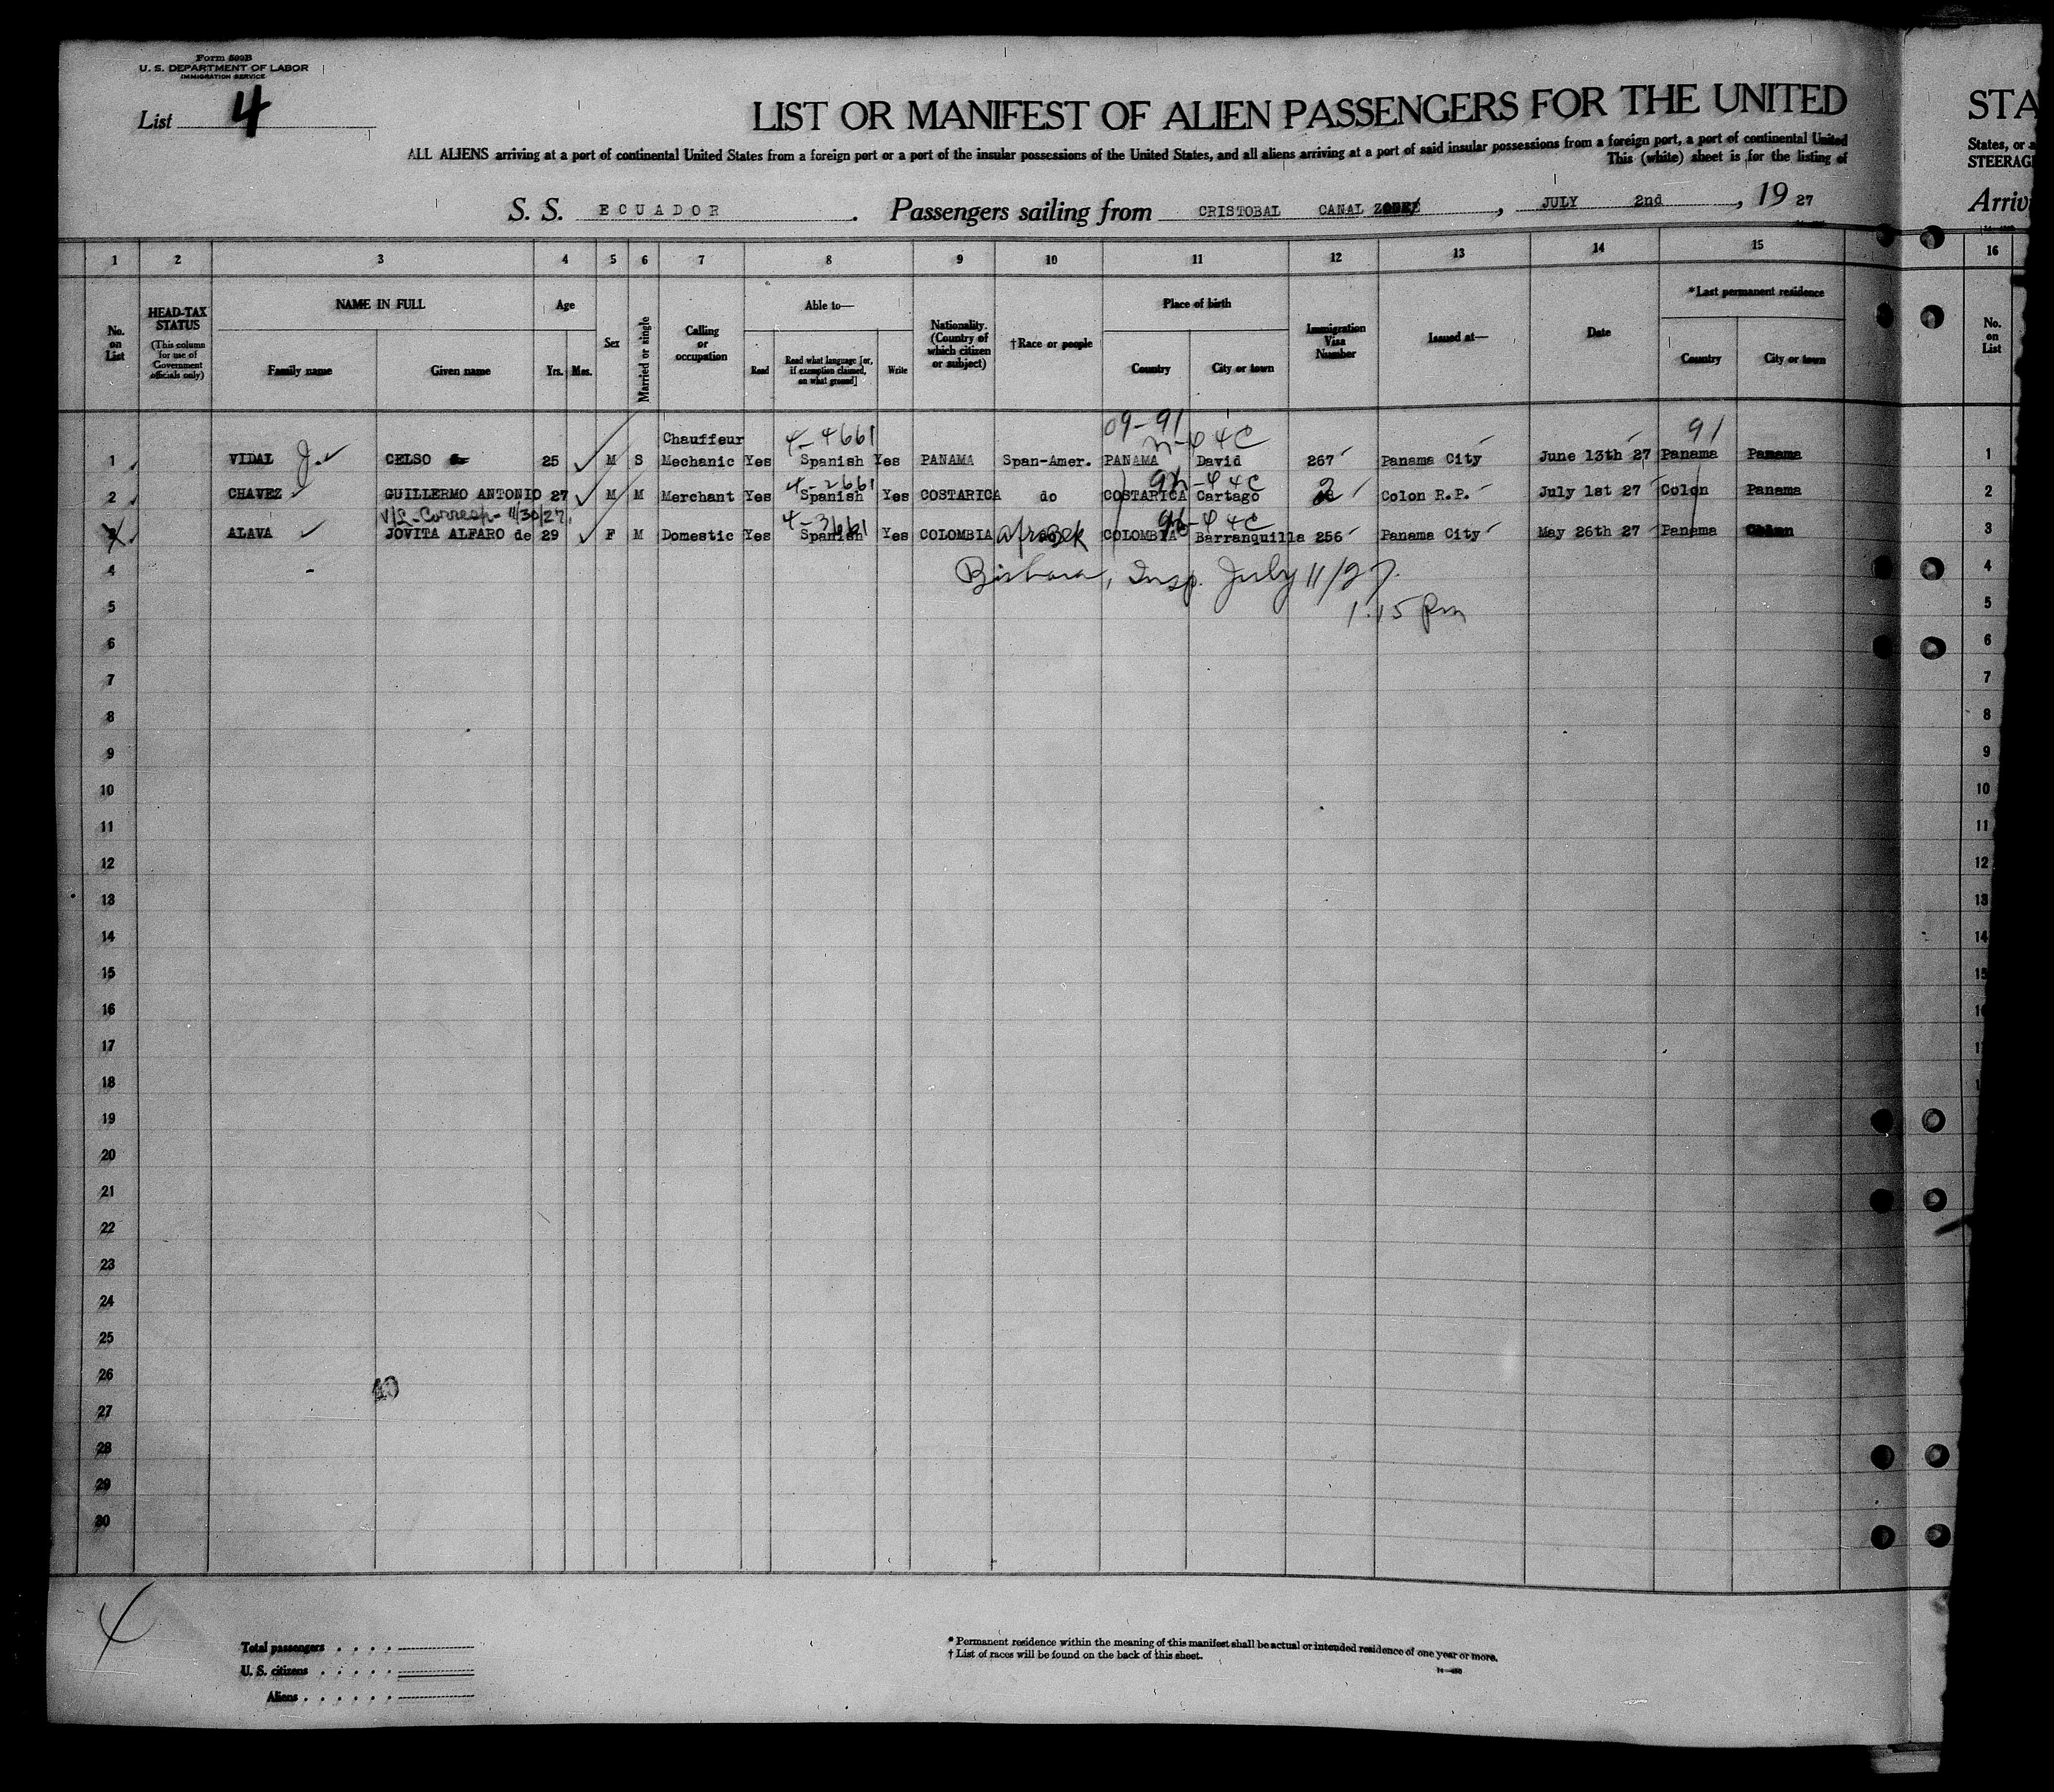 Form 500B
U. S. DEPARTMENT OF LABOR
IMMIGRATION SERVICE
List 4
LIST OR MANIFEST OF ALIEN PASSENGERS FOR THE UNITED
STA
ALL ALIENS arriving at a port of continental United States from a foreign port or a port of the insular possessions of the United States, and all aliens arriving at a port of said insular possessions from a foreign port, a port of continental United
States, or a
This (white) sheet is for the listing of
STEERAG
S. S. ECUADOR. Passengers sailing from CRISTOBAL CANAL ZONE, JULY 2nd, 19 27
Arriv
1 2 3 4 5 6 7 8 9 10 11 12 13 14 15 16
No. on List
HEAD-TAX STATUS (This column for use of Government officials only)
NAME IN FULL
Family name Given name
Age
Yrs. Mos.
Sex
Married or single
Calling or occupation
Able to—
Read Read what language [or, if exemption claimed, on what ground] Write
Nationality. (Country of which citizen or subject)
†Race or people
Place of birth
Country City or town
Immigration Visa Number
Issued at—
Date
*Last permanent residence
Country City or town
No. on List
09-91 91
Chauffeur 4-4661 n-φ4C
1 VIDAL J. CELSO 25 M S Mechanic Yes Spanish Yes PANAMA Span-Amer. PANAMA David 267 Panama City June 13th 27 Panama Panama 1
4-2661 φ4C
2 CHAVEZ GUILLERMO ANTONIO 27 M M Merchant Yes Spanish Yes COSTARICA do COSTARICA Cartago 2 Colon R.P. July 1st 27 Colon Panama 2
V/L-Corresp- 11/30/27 4-3661 φ4C
3 ALAVA JOVITA ALFARO de 29 F M Domestic Yes Spanish Yes COLOMBIA COLOMBIA Barranquilla 256 Panama City May 26th 27 Panama 3
4 Insp. July 11/27. 4
1.15 pm
5 5
6 6
7 7
8 8
9 9
10 10
11 11
12 12
13 13
14 14
15 15
16
17
18
19
20
21
22
23
24
25
26
27
28
29
30
Total passengers
U. S. citizens
Aliens
* Permanent residence within the meaning of this manifest shall be actual or intended residence of one year or more.
† List of races will be found on the back of this sheet.